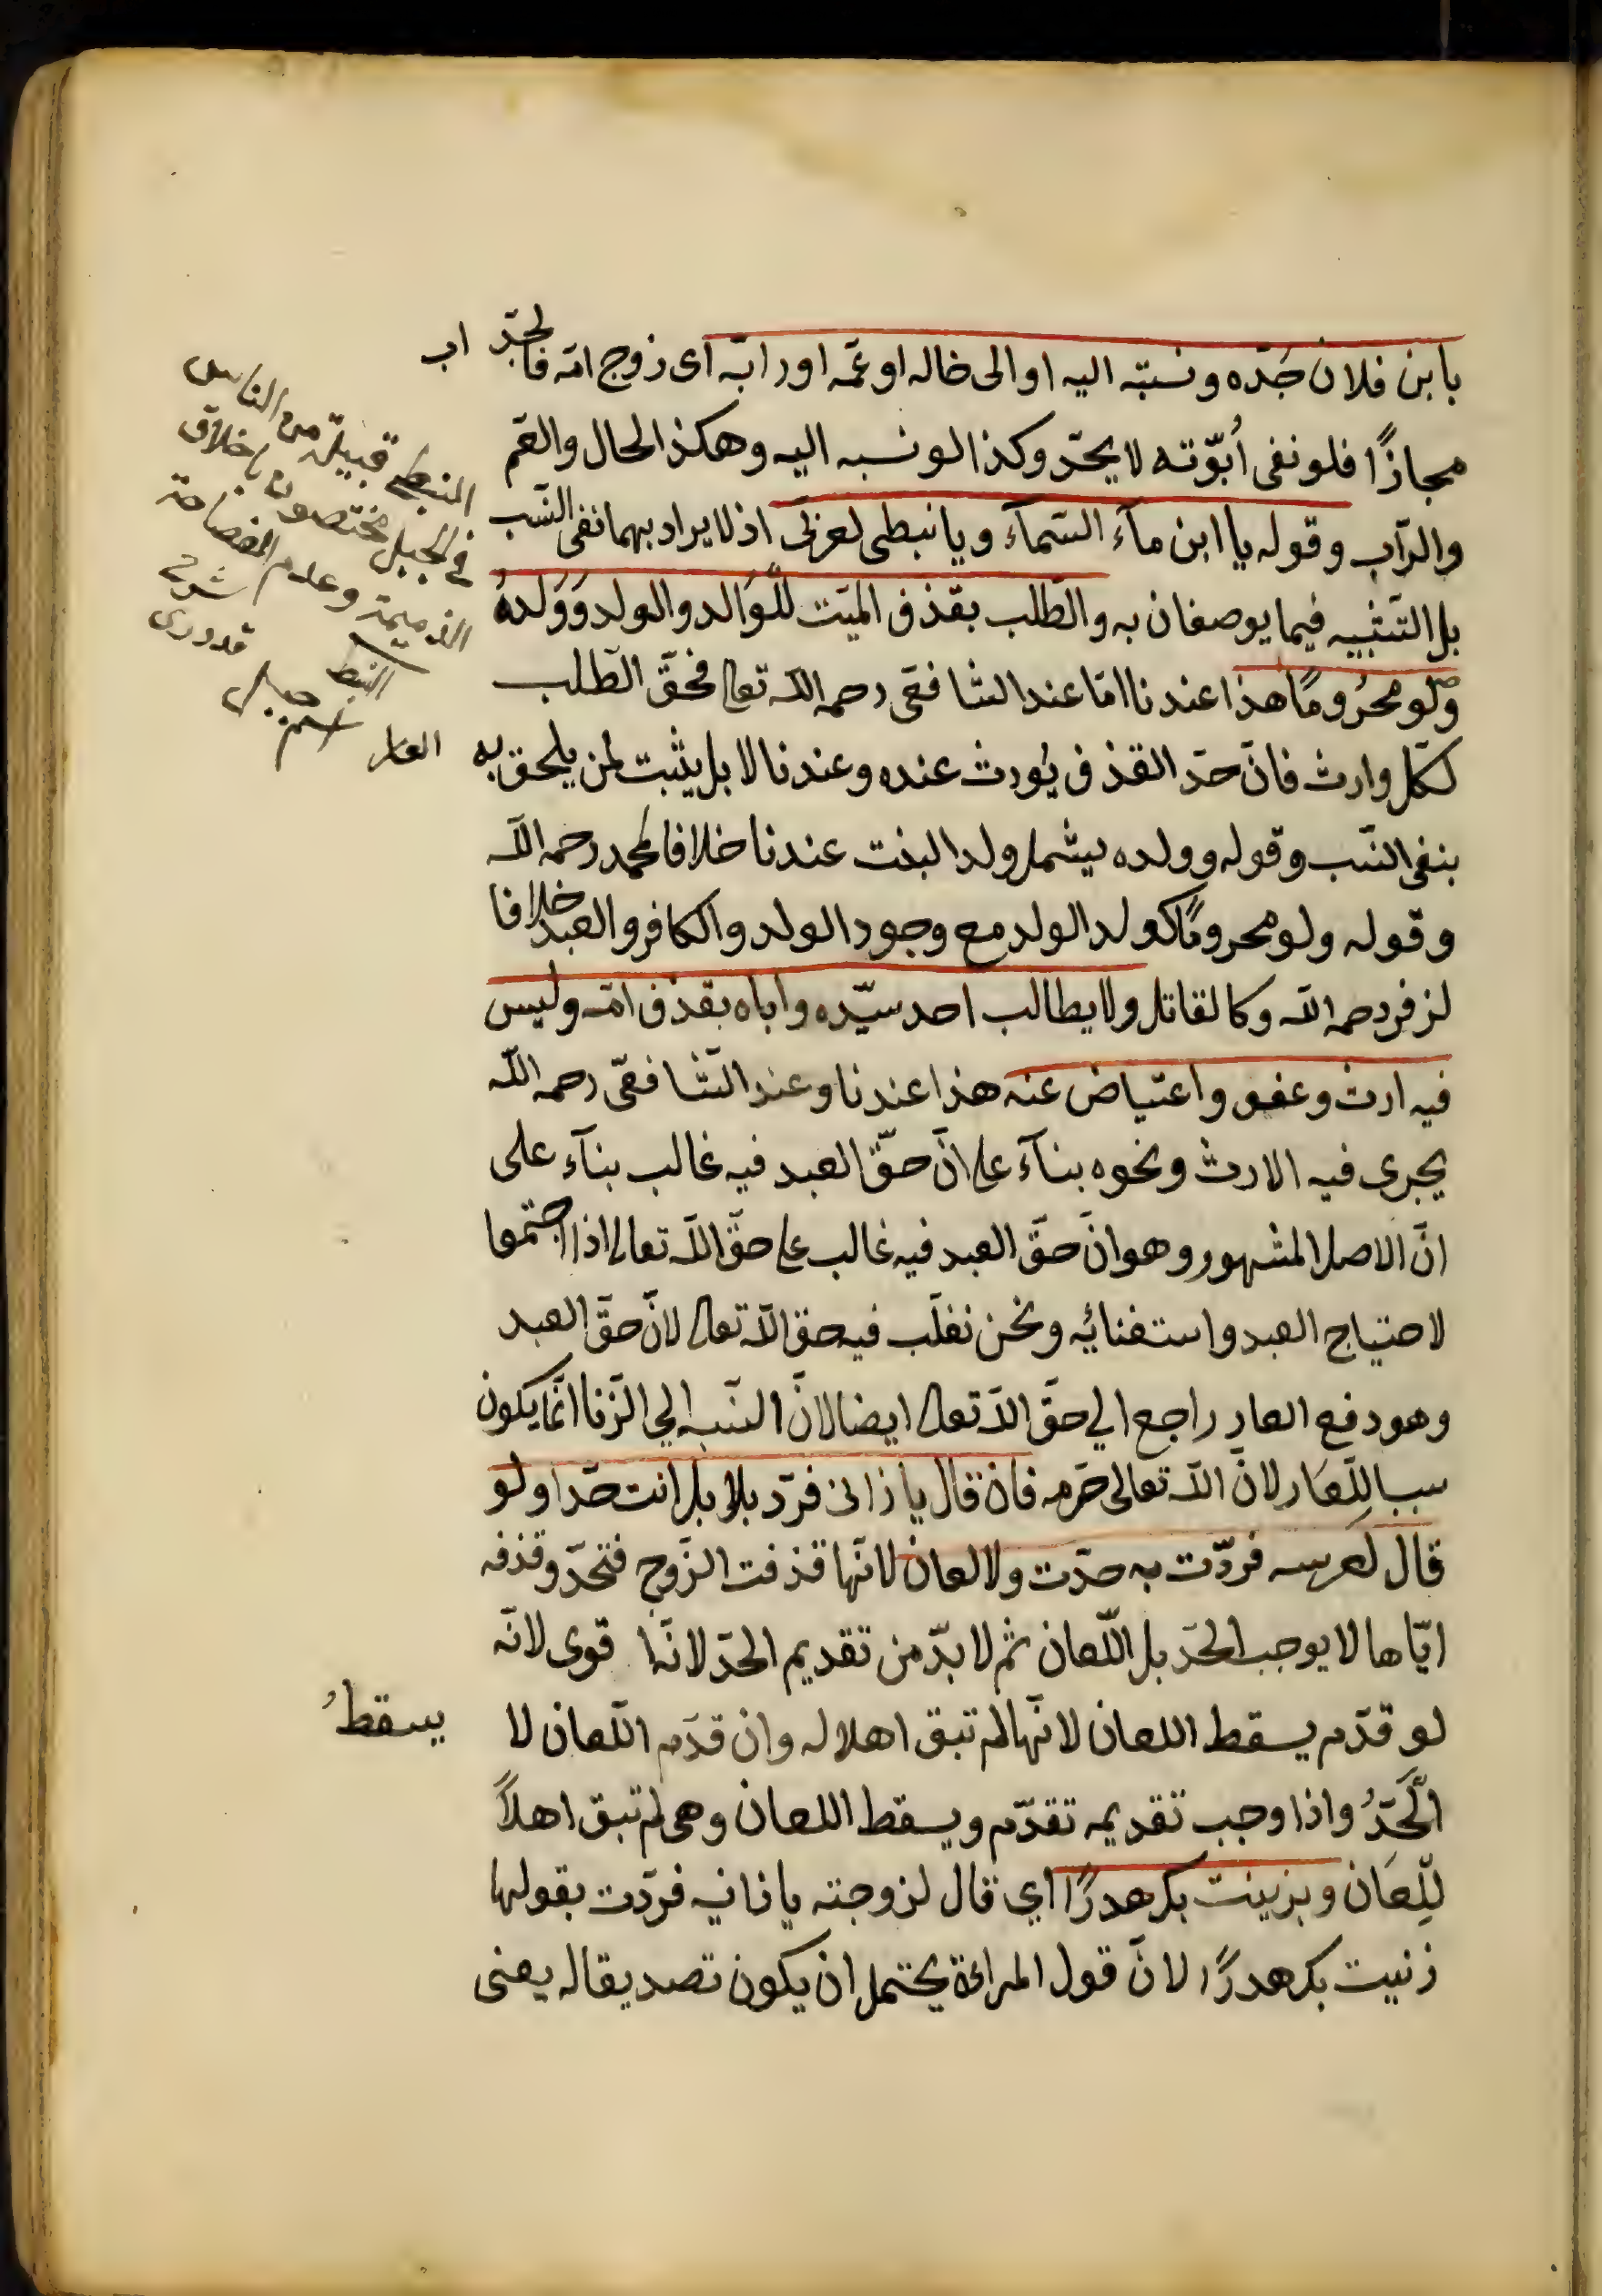 بابن فلان جدّه ونسبته اليه او الى خاله او عمّه او رابّه اى زوج امّه فالجدّ اب
مجازًا فلو نفى أُبوّته لا يحدّ وكذا لو نسبه اليه وهكذا الخال والعمّ
والرآبّ وقوله يا ابن مآء السّمآء ويا نبطى لعربىّ اذ لا يراد بهما نفى النّسب
بل التّشبيه فيما يوصفان به والطّلب بقذف الميّت للوَالد والولد وَوَلدهُ
ولو محرُومًا هذا عندنا امّا عند الشافعىّ رحمه اللّه تعا فحقّ الطّلب
لكلّ وارث فانّ حدّ القذف يُورث عنده وعندنا لا بل يثبت لمن يلحق به العار
بنفى النّسب وقوله وولده يشمل ولد البنت عندنا خلافا لمحمد رحمه اللّه
وقوله ولو محرومًا كولد الولد مع وجود الولد والكافر والعبد خلافا
لزفر رحمه اللّه وكالقاتل ولا يطالب احد سيّده واباه بقذف امّه وليس
فيه ارث وعفو واعتياض عنه هذا عندنا وعند الشّافعىّ رحمه اللّه
يجرى فيه الارث ونحوه بنآء على انّ حقّ العبد فيه غالب بنآء على
انّ الاصل المشهور وهو انّ حقّ العبد فيه غالب على حقّ اللّه تعالى اذا اجتمعا
لاحتياج العبد واستغنائه ونحن نغلّب فيه حق اللّه تعالى لانّ حقّ العبد
وهو دفع العار راجع الي حقّ اللّه تعالى ايضا لانّ النّسبه الي الزّنا انّما يكون
سببا للعَار لانّ اللّه تعالى حرّمه فان قال يا زانى فردّ بلا بل انت حدّا ولو
قال لعرسه فردّت به حدّت ولا لعان لانّها قذفت الزّوج فتحدّ وقذفه
ايّاها لا يوجب الحدّ بل اللّعان ثم لا بدّ من تقديم الحدّ لانّها قوى لانّه
لو قدّم يسقط اللعان لانّها لم تبق اهلا له وان قدّم اللّعان لا يسقطُ
الحَدُّ واذا وجب تقديمه تقدّم ويسقط اللعان وهى لم تبق اهلاً
للِّعَان وبزينت بكر هدرًا اي قال لزوجته يا زانيه فردّت بقولها
زنيت بكر هدرًا لانّ قول المراءة يحتمل ان يكون تصديقا له يعنى
النبطى قبيلة من الناس
فى الجبل مختصون باخلاق
الذميمة وعدم الفصاحة
شرح قدورى
النبط
اسم جبل